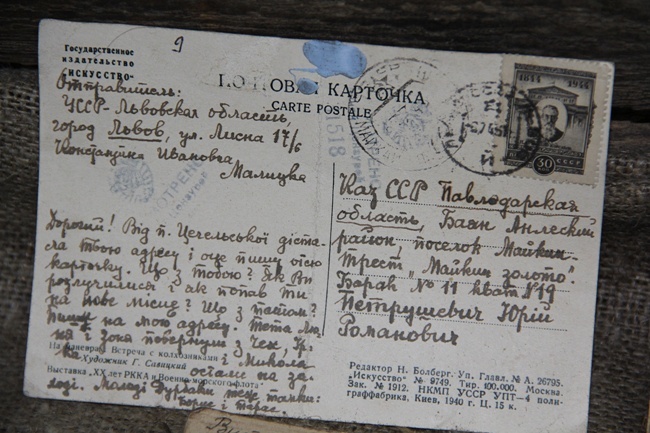 Государственное
издательство
„ИСКУССТВО"
9
ПОЧТОВАЯ КАРТОЧКА
CARTE POSTALE
Отправитель:
УССР-Львовская область,
город Львов, ул. Лисна 17/6
Константина Ивановна
Малицка
1518
1844 1944
30
СССР
Каз ССР Павлодарская
область, Баян Аулеский
район, поселок Майкаин
трест „Майкаин золото"
Барак №11 кват №19
Петрушевич Юрій
Романович
Дорогий! Від п. Цегельської діста-
ла твою адресу і оце пишу отсю
карточку. Що з тобою? Як Ви
розлучилися і як попав ти
на нове місце? Що з татом?
Пиши на мою адресу. Тета
і Зоня повернули з Чех,
Микола
остали на за-
ході. Молоді теж там:
Борис і Тарас.
На маневрах Встреча с колхозниками
Художник Г. Савицкий
Выставка „XX лет РККА и Военно-морского флота"
Редактор Н. Болберг. Уп. Главл. № А. 26795.
„Искусство" № 9749. Тир. 100.000. Москва.
Зак. № 1912. НКМП УССР УПТ-4 поли-
граффабрика, Киев, 1940 г. Ц. 15 к.